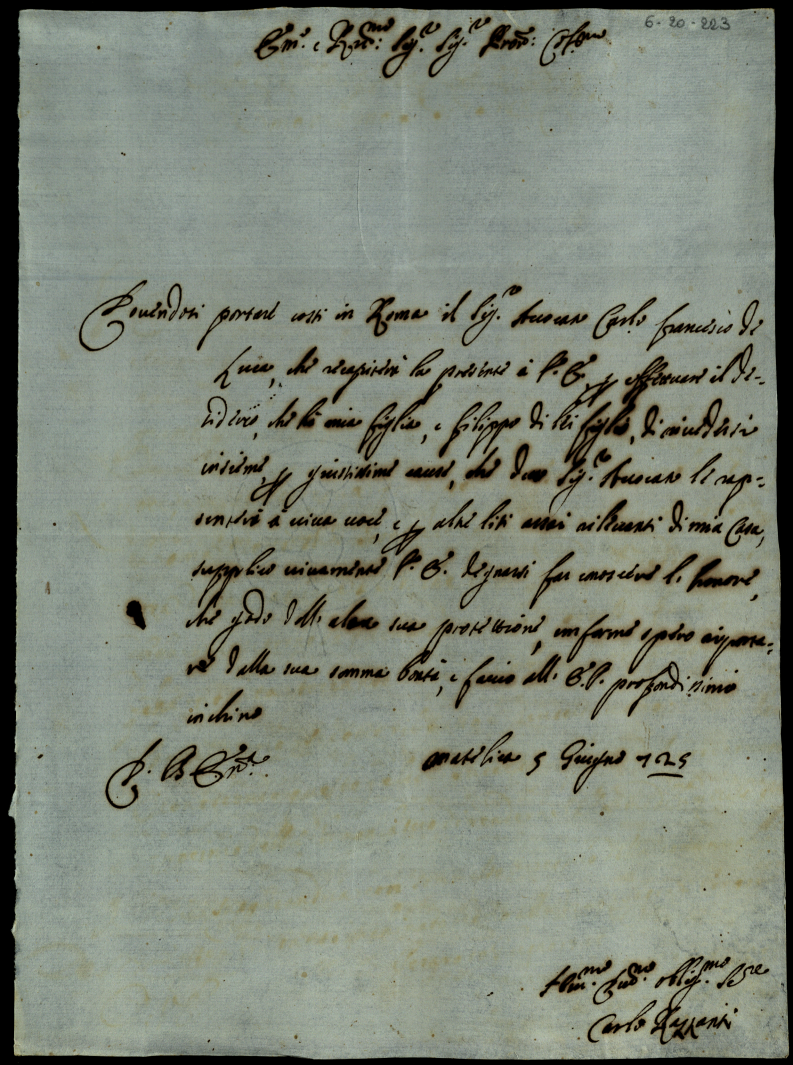 6-20-223
Em.o e R.mo Sig.r Sig.r Pron: Col.mo
Dovendosi portare costì in Roma il Sig.r Avocato Carlo Francesco de
Luca, che recapiterà la presente à V. E. per effettuare il de-
siderio, che hà mia figlia, e Filippo di lei figlio, di riuedersi
insieme, per giustissime cause, che detto Sig.r Auocato le rap-
senterà à uiua uoce, e per altre liti assai rileuanti di mia Casa,
supplico uiuamente V. E. degnarsi far conoscere l'honore,
che godo dell'alta sua protettione, conforme spero riporta-
re dalla sua somma bontà, e faccio all'E.V. profondissimo
inchino
D. V. Em.za
Matelica 5 Giugno 725
Hum.mo Diu.mo oblig.mo S.re
Carlo Razzanti